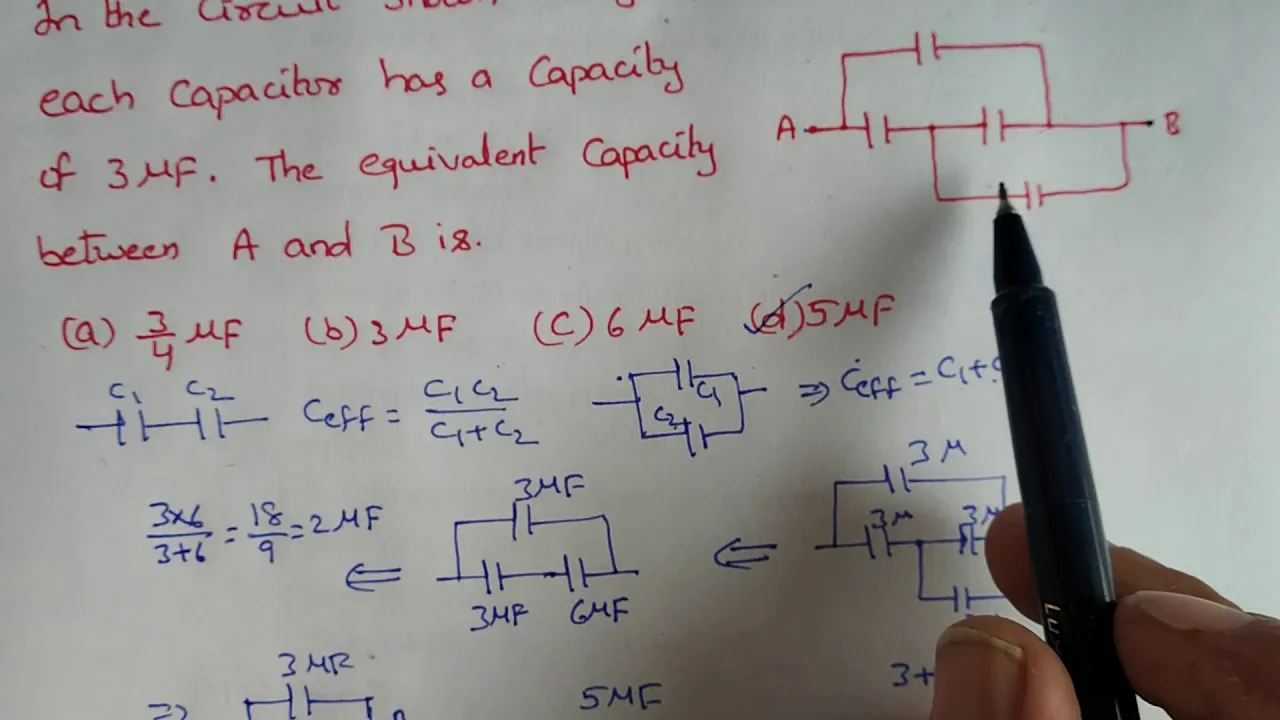 In the Circuit
each Capacitor has a Capacity
of 3 μF. The equivalent Capacity
between A and B is.
A B
(a) 3/4 μF (b) 3 μF (c) 6 μF (d) 5 μF
C1 C2 Ceff = C1 C2 / C1 + C2
C1 C2 ⇒ Ceff = C1 +
3×6 / 3+6 = 18/9 = 2 μF
⇐ 3 μF 3 μF 6 μF
⇐ 3 μ 3 μ 3 μ
⇒ 3 μF
5 μF
3+